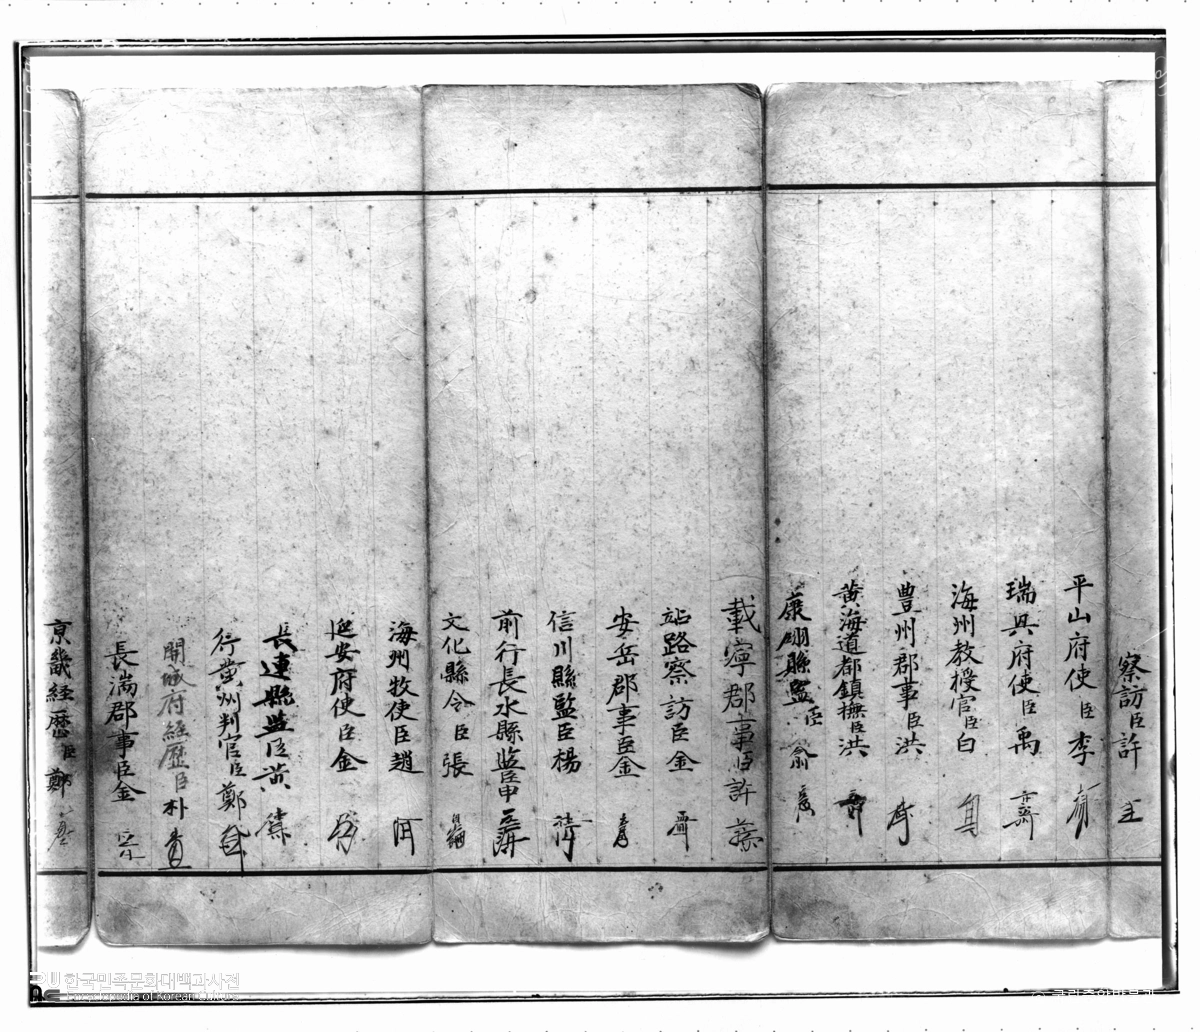 察訪臣許
平山府使臣李
瑞興府使臣禹
海州教授官臣白
豊州郡事臣洪
黄海道都鎮撫臣洪
康翎縣監臣俞
載寧郡事臣許
站路察訪臣金
安岳郡事臣金
信川縣監臣楊
前行長水縣監臣申
文化縣令臣張
海州牧使臣趙
延安府使臣金
長連縣監臣黄
行黄州判官臣鄭
開城府經歴臣朴
長湍郡事臣金
京畿経歴臣鄭
한국민족문화대백과사전
Encyclopedia of Korean Culture